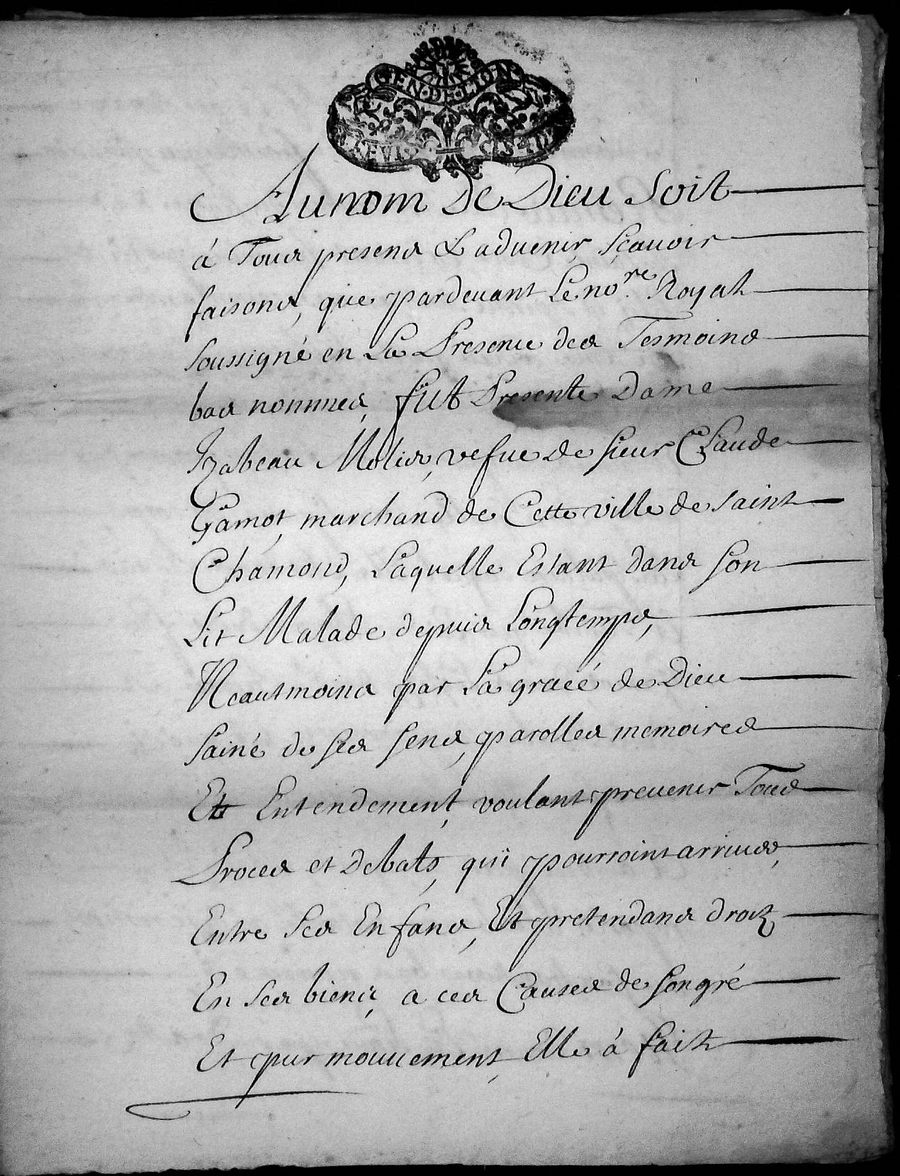 GEN. DE LION
Au nom De Dieu Soit
à Tous presens & aduenir, sçauoir
faisons, que pardeuant Le no.re Royal
soussigné en La Presence des Tesmoins
bas nommes, fût Presente Dame
Izabeau Molis, vefue de sieur Claude
Gamot, marchand de Cette ville de saint
Chamond, Laquelle Estant dans son
Lit Malade depuis Longtemps,
Neausmoins par La gracé de Dieu
sainé de ses sens, parolles memoires
Et Entendement, voulant preuenir Tous
Proces et debats, quï pourroint arriuer,
Entre ses Enfans, Et pretendans droit
En ses biens, a ces Causes de son gré
Et pur mouuement, Elle à fait